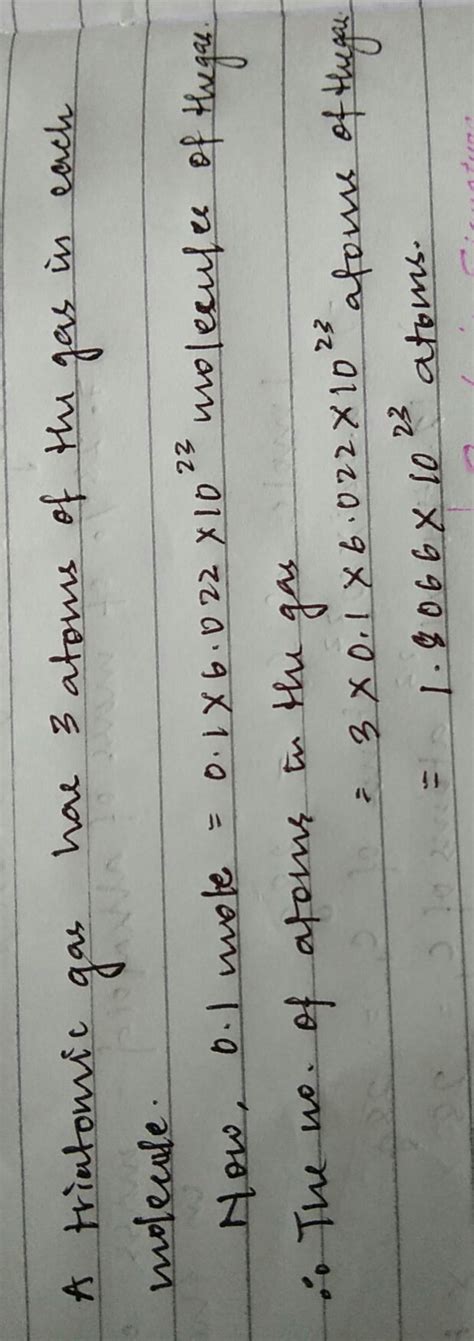 A triatomic gas has 3 atoms of the gas in each
molecule.
Now, 0.1 mole = 0.1 × 6.022 × 10²³ molecules of the gas.
∴ The no. of atoms in the gas
= 3 × 0.1 × 6.022 × 10²³ atoms of the gas.
= 1.8066 × 10²³ atoms.